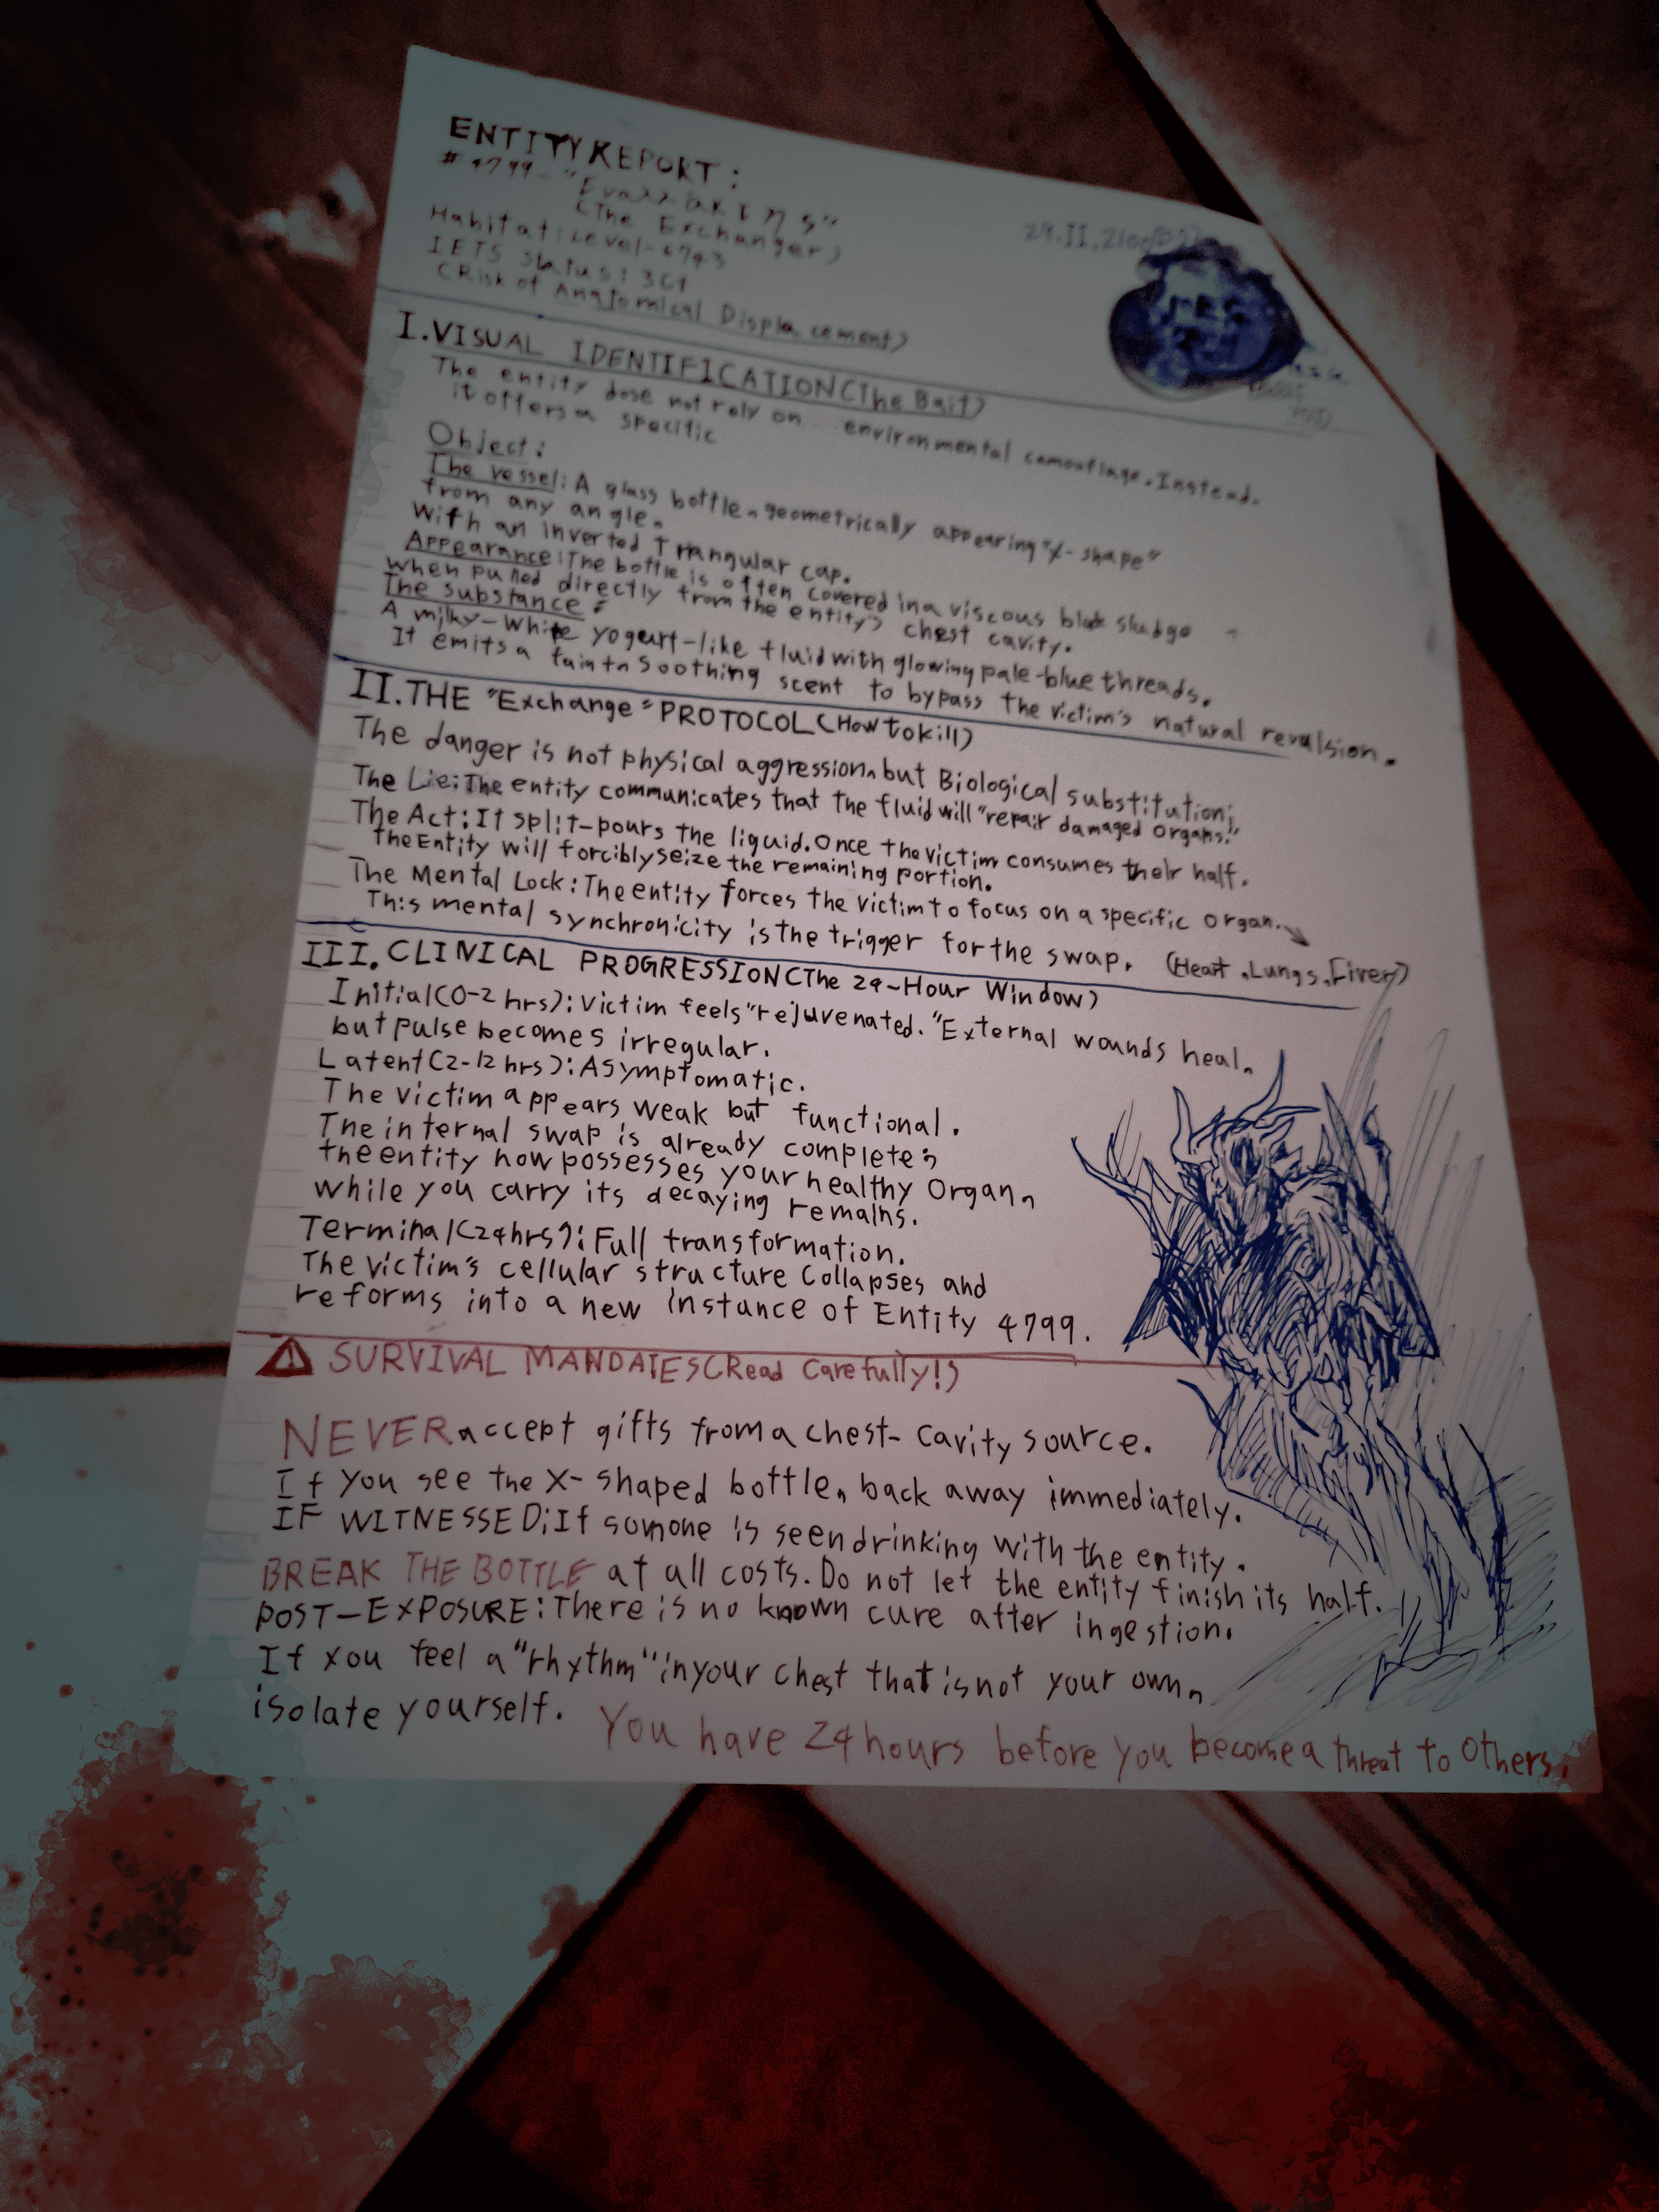 ENTITY REPORT:
(The Exchanger)
Habitat: Level-
IETS Status:
(Risk of Anatomical Displacement)
I. VISUAL IDENTIFICATION (The Bait)
The entity dose not rely on environmental camouflage. Instead.
it offers a specific
Object:
The vessel: A glass bottle, geometrically appearing "X-shape"
from any angle,
with an inverted Triangular cap.
Appearance: The bottle is often covered in a viscous black sludge
when pulled directly from the entity's chest cavity.
The substance:
A milky-white yogurt-like fluid with glowing pale-blue threads.
It emits a faint, soothing scent to bypass the victim's natural revulsion.
II. THE "Exchange" PROTOCOL (How to kill)
The danger is not physical aggression, but Biological substitution;
The Lie: The entity communicates that the fluid will "repair damaged organs."
The Act: It split-pours the liquid. Once the victim consumes their half.
The Entity will forcibly seize the remaining portion.
The Mental Lock: The entity forces the victim to focus on a specific organ.
This mental synchronicity is the trigger for the swap. (Heart, Lungs, Fiver)
III. CLINICAL PROGRESSION (The 24-Hour Window)
Initial (0-2 hrs): Victim feels "rejuvenated." External wounds heal,
but pulse becomes irregular.
Latent (2-12 hrs): Asymptomatic.
The victim appears weak but functional.
The internal swap is already complete;
the entity now possesses your healthy organ,
while you carry its decaying remains.
Terminal (24hrs): Full transformation.
The victim's cellular structure collapses and
reforms into a new instance of Entity 4799.
⚠ SURVIVAL MANDATES (Read Carefully!)
NEVER accept gifts from a chest-cavity source.
If you see the X-shaped bottle, back away immediately.
IF WITNESSED: If somone is seen drinking with the entity.
BREAK THE BOTTLE at all costs. Do not let the entity finish its half.
POST-EXPOSURE: There is no known cure after ingestion.
If you feel a "rhythm" in your chest that is not your own,
isolate yourself. You have 24 hours before you become a threat to others.